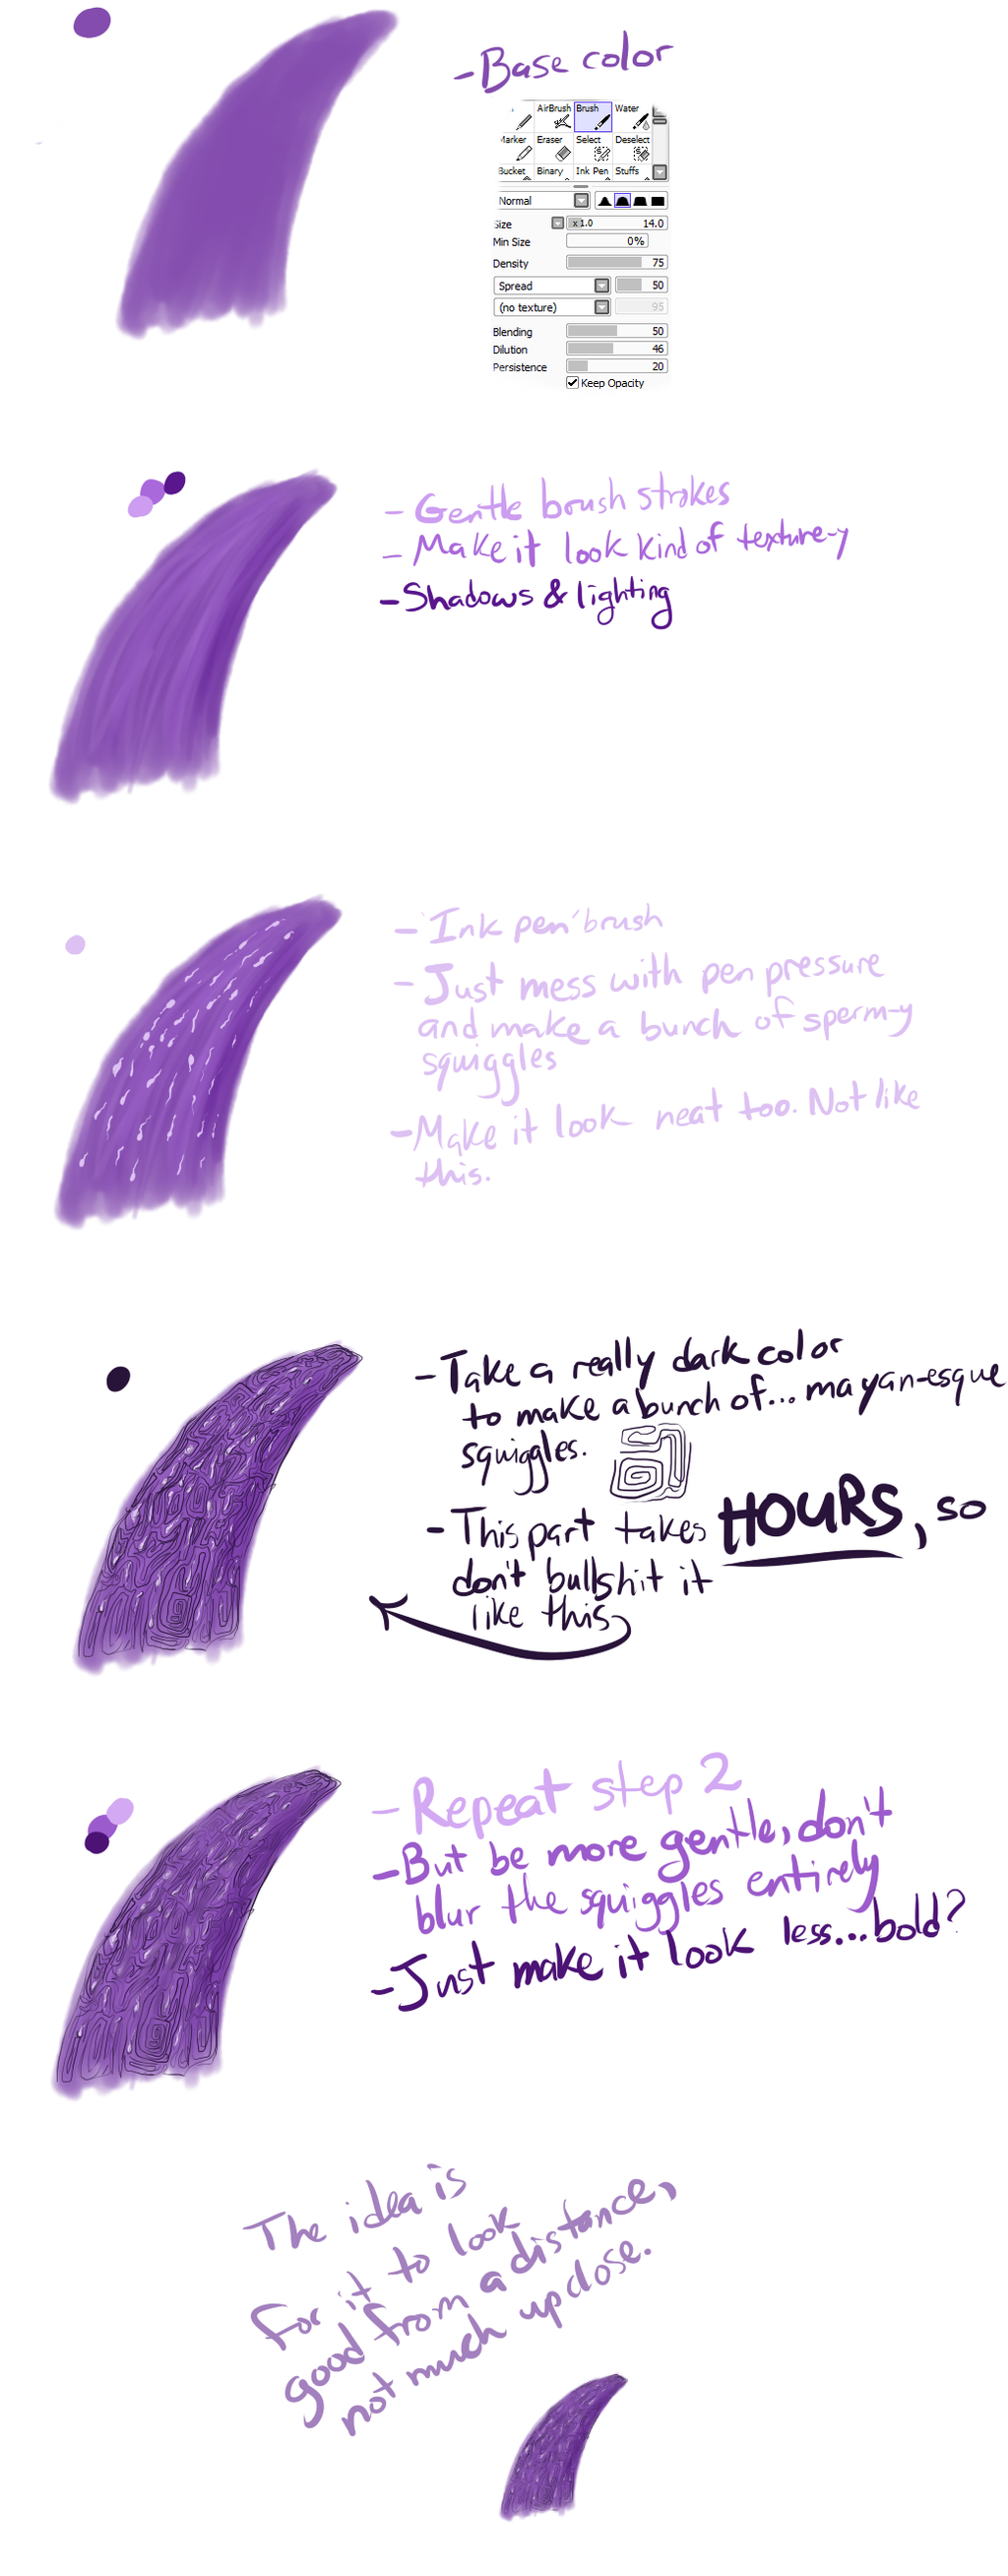 -Base color
AirBrush Brush Water
Marker Eraser Select Deselect
Bucket Binary Ink Pen Stuffs
Normal
Size x1.0 14.0
Min Size 0%
Density 75
Spread 50
(no texture) 95
Blending 50
Dilution 46
Persistence 20
Keep Opacity
- Gentle brush strokes
- Make it look kind of texture-y
-Shadows & lighting
- 'Ink pen' brush
- Just mess with pen pressure
and make a bunch of sperm-y
squiggles
-Make it look neat too. Not like
this.
-Take a really dark color
to make a bunch of... mayan-esque
squiggles.
- This part takes HOURS, so
don't bullshit it
like this
- Repeat step 2
-But be more gentle, don't
blur the squiggles entirely
-Just make it look less...bold?
The idea is
for it to look
good from a distance,
not much up close.